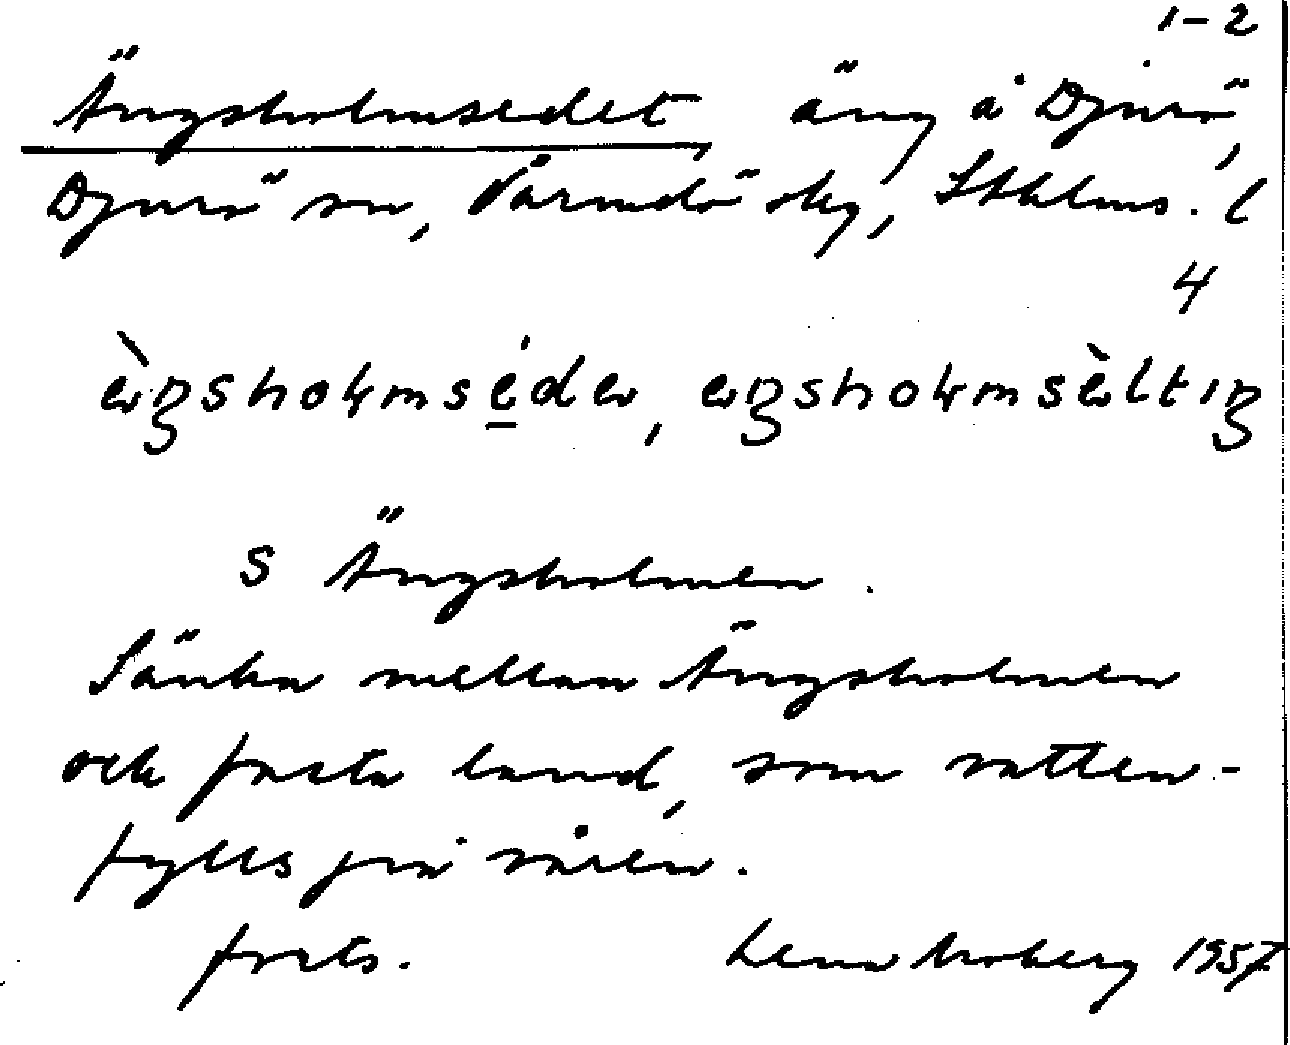 1-2
Ängsholmsedet äng å Djurö,
Djurö sn, Värmdö skg, Sthlms. l
4
èŋsholmséder, eŋsholmsèltıŋ
S Ängsholmen.
Sänka mellan Ängsholmen
och fasta land, som vatten-
fylls på våren.
forts. Lena Moberg 1957